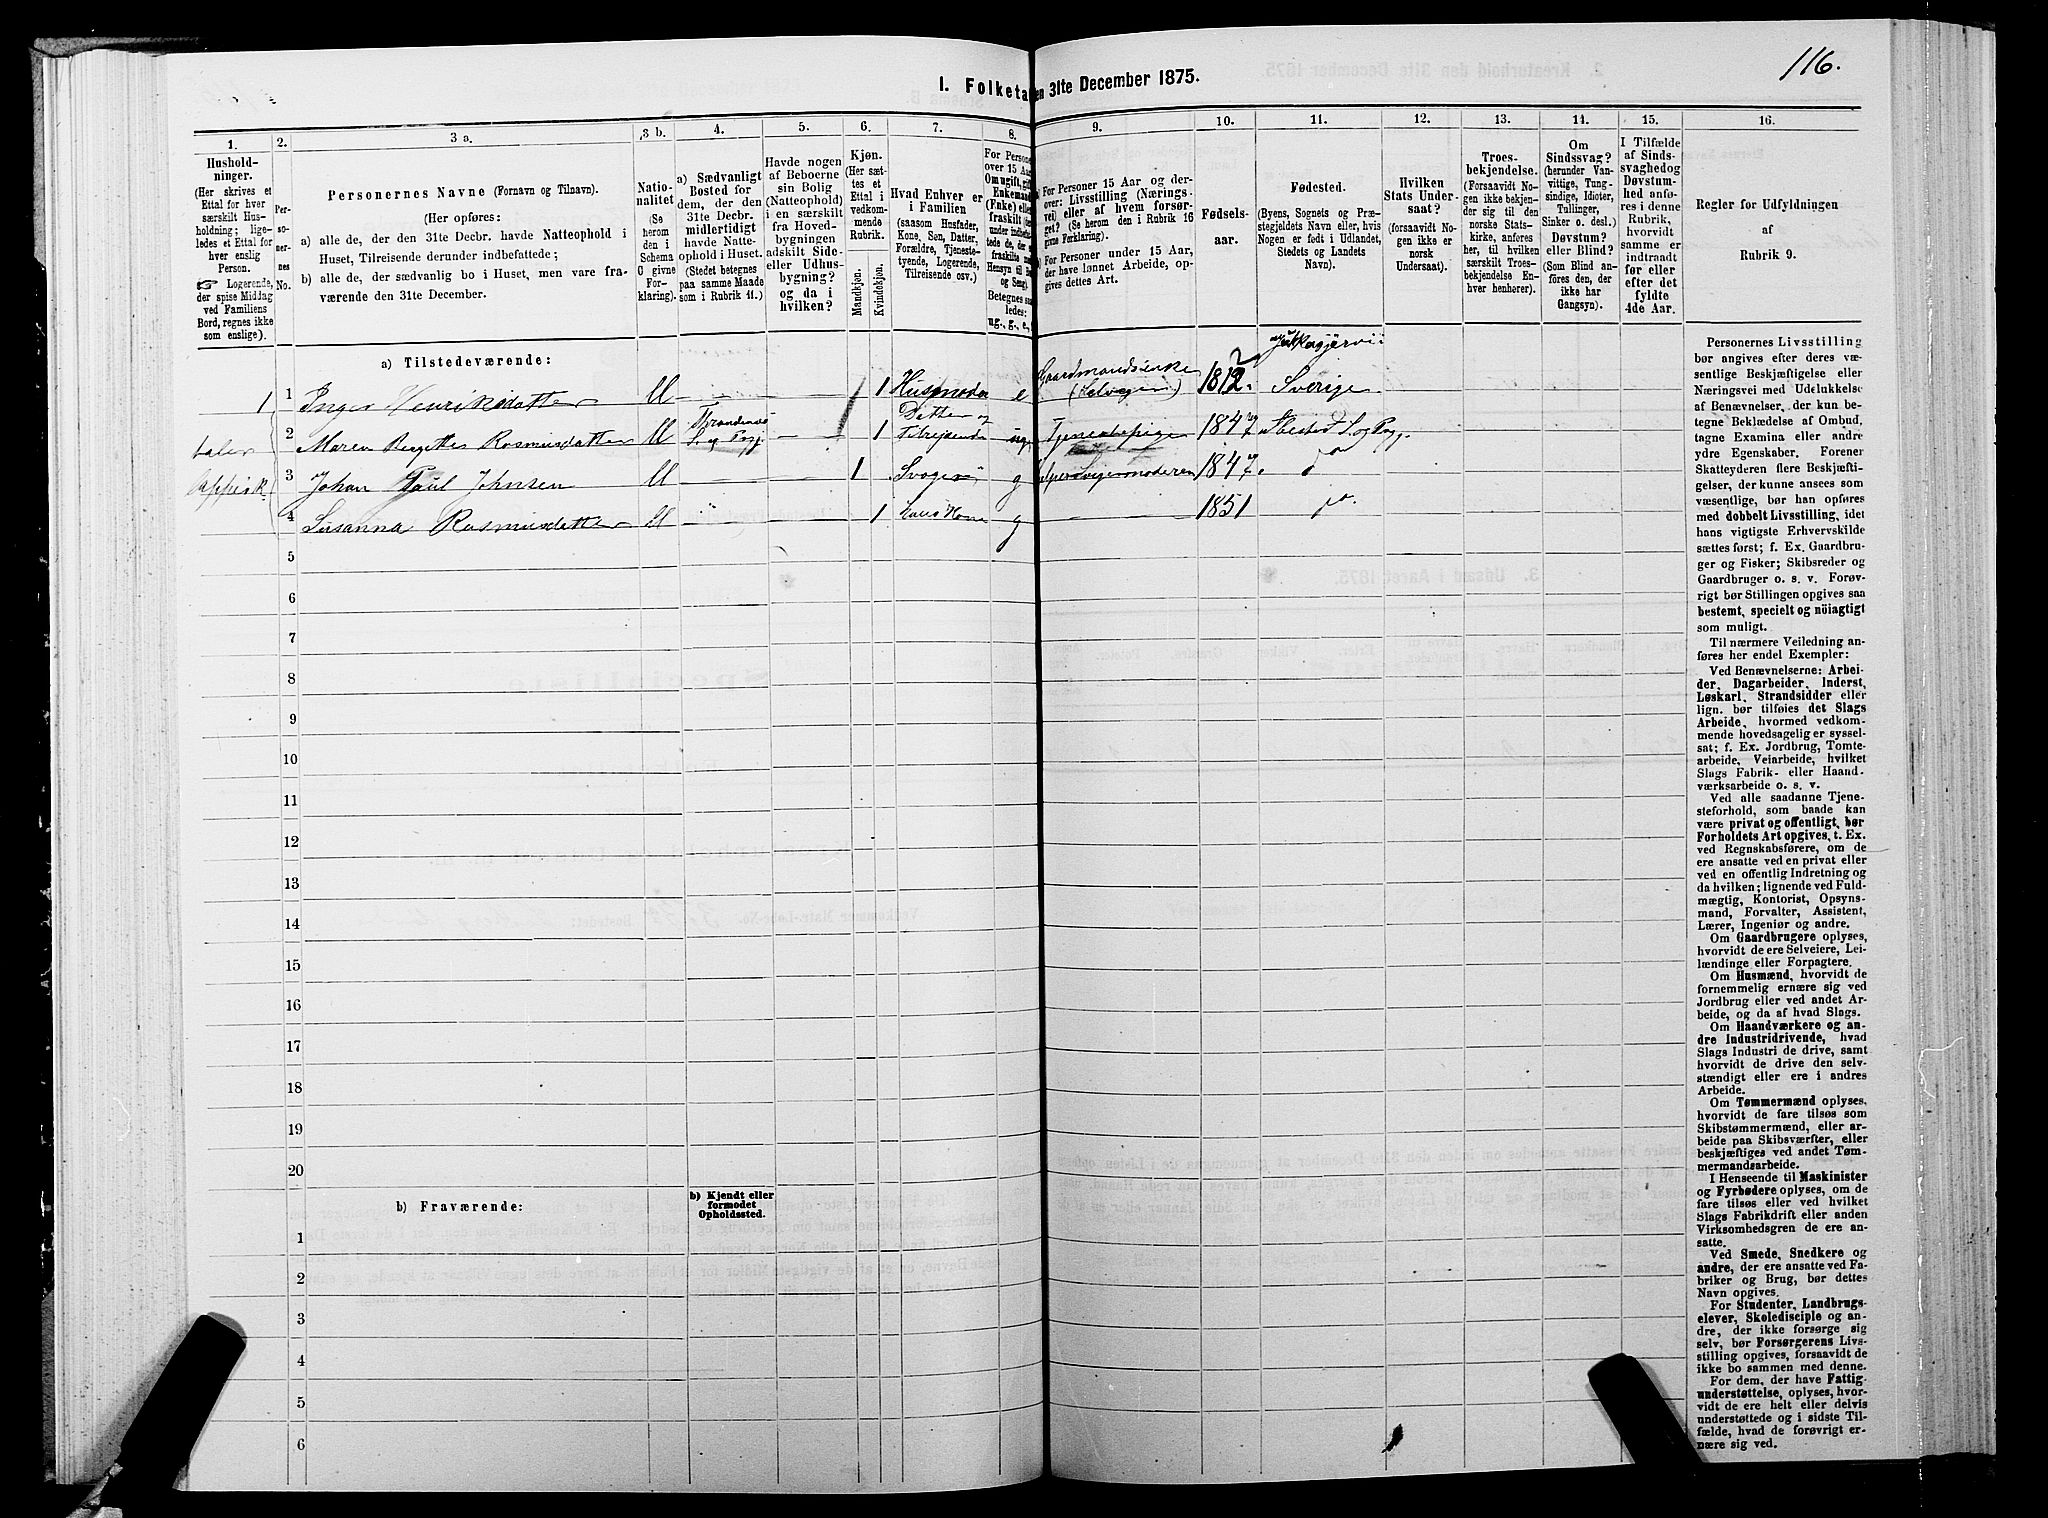 116.
1. Folketa en 31te December 1875.
1. 2. 3 a. 3 b. 4. 5. 6. 7. 8. 9. 10. 11. 12. 13. 14. 15. 16.
Hushold-
ninger.
(Her skrives et
Ettal for hver
særskilt Hus-
holdning; lige-
ledes et Ettal for
hver enslig
Person.
☞ Logerende,
der spise Middag
ved Familiens
Bord, regnes ikke
som enslige).
Per-
sono-
ner-
nes
No.
Personernes Navne (Fornavn og Tilnavn).
(Her opføres:
a) alle de, der den 31te Decbr. havde Natteophold i
Huset, Tilreisende derunder indbefattede;
b) alle de, der sædvanlig bo i Huset, men vare fra-
værende den 31te December.
Natio-
nalitet
(Se
herom
den i
Schema
O givne
For-
klaring).
a) Sædvanligt
Bosted for
dem, der den
31te Decbr.
midlertidigt
havde Natte-
ophold i Huset.
(Stedet betegnes
paa samme Maade
som i Rubrik 11.)
Havde nogen
af Beboerne
sin Bolig
(Natteophold)
i en særskilt
fra Hoved-
bygningen
adskilt Side-
eller Udhus-
bygning?
og da i
hvilken?
Kjøn.
(Her sæt-
tes et
Ettal i
vedkom-
mende
Rubrik.
Mandkjøn.
Kvindekjøn.
Hvad Enhver er
i Familien
(saasom Husfader,
Kone, Søn, Datter,
Forældre, Tjeneste-
tyende, Logerende,
Tilreisende osv.)
For Persone
over 15 Aar
Om ugift, gift
Enkemand
(Enke) eller
fraskilt (der
under indbefat-
tede de, der
fraskilte med
Hensyn til Bo
og Seng).
Betegnes saa
ledes:
ug., g., e.,
a) For Personer 15 Aar og der-
over: Livsstilling (Nærings-
vei) eller af hvem forsør-
get? (Se herom den i Rubrik 16
givne Forklaring).
b) For Personer under 15 Aar,
der have lønnet Arbeide, op-
gives dettes Art.
Fødsels-
aar.
Fødested.
(Byens, Sognets og Præ-
stegjeldets Navn eller, hvis
Nogen er født i Udlandet,
Stedets og Landets
Navn).
Hvilken
Stats Under-
saat?
(forsaavidt No-
gen ikke er
norsk
Undersaat).
Troes-
bekjendelse.
(Forsaavidt No-
gen ikke bekjen-
der sig til den
norske Stats-
kirke, anføres
her, til hvilken
særskilt Troes-
bekjendelse En-
hver henhører).
Om
Sindssvag?
(herunder Van-
vittige, Tung-
sindige, Idioter,
Tullinger,
Sinker o. desl.).
Døvstum?
eller Blind?
(Som Blind an-
føres den, der
ikke har
Gangsyn).
I Tilfælde
af Sinds-
svaghedog
Døvstum-
hed anfø-
res i denne
Rubrik,
hvorvidt
samme er
indtraadt
før eller
efter det
fyldte
4de Aar.
Regler for Udfyldningen
af
Rubrik 9.
a) Tilstedeværende:
1 1 Inger Henriksdatter U 1 Husmoder e Gaardmandsenke (Selveger) 1812. Jukkasjervi Sverige
2 Maren Bergitte Rasmusdatter U Trondenæs S. og Pgj. 1 Datter og Tilreisende ug Tjenestepige 1847 Ibestad S. og Pgj.
3 Johan Paul Johnsen U 1 Svoger g 1847. do
4 Susanna Rasmusdatter U 1 hans Kone g 1851 do.
5
6
7
8
9
10
11
12
13
14
15
16
17
18
19
20
b) Fraværende:
b) Kjendt eller
formodet
Opholdssted.
1
2
3
4
5
6
Personernes Livsstilling
bør angives efter deres væ-
sentlige Beskjæftigelse eller
Næringsvei med Udelukkelse
af Benævnelser, der kun be-
tegne Beklædelse af Ombud,
tagne Examina eller andre
ydre Egenskaber. Forener
Skatteyderen flere Beskjæfti-
gelser, der kunne ansees som
væsentlige, bør han opføres
med dobbelt Livsstilling, idet
hans vigtigste Erhvervskilde
sættes først; f. Ex. Gaardbru-
ger og Fisker; Skibsreder og
Gaardbruger o. s. v. Forøv-
rigt bør Stillingen opgives saa
bestemt, specielt og nöiagtigt
som muligt.
Til nærmere Veiledning an-
føres her endel Exempler:
Ved Benævnelserne: Arbei-
der, Dagarbeider, Inderst,
Løskarl, Strandsidder eller
lign. bør tilføies det Slags
Arbeide, hvormed vedkom-
mende hovedsagelig er syssel-
sat; f. Ex. Jordbrug, Tomte-
arbeide, Veiarbeide, hvilket
Slags Fabrik- eller Haand-
værksarbeide o. s. v.
Ved alle saadanne Tje-
nesteforhold, som baade kan
være privat og offentligt, bør
Forholdets Art opgives, t. Ex.
ved Regnskabsførere, om de
ere ansatte ved en privat eller
ved en offentlig Indretning og
da hvilken; lignende ved Fuld-
mægtig, Kontorist, Opsyns-
mand, Forvalter, Assistent,
Lærer, Ingeniør og andre.
Om Gaardbrugere oplyses,
hvorvidt de ere Selveiere, Lei-
lændinge eller Forpagtere.
Om Husmænd, hvorvidt de
fornemmelig ernære sig ved
Jordbrug eller ved andet Ar-
beide, og da af hvad Slags.
Om Haandværkere og an-
dre Industridrivende, hvad
Slags Industri de drive, samt
hvorvidt de drive den selv-
stændigt eller ere i andres
Arbeide.
Om Tømmermænd oplyses,
hvorvidt de fare tilsøs som
Skibstømmermænd, eller ar-
beide paa Skibsværfter, eller
beskjæftiges ved andet Tøm-
mermandsarbeide.
I Henseende til Maskinister
og Fyrbødere oplyses, om de
fare tilsøs eller ved hvilket
Slags Fabrikdrift eller anden
Virksomhedsgren de ere an-
satte.
Ved Smede, Snedkere og
andre, der ere ansatte ved Fa-
briker og Brug, bør dettes
Navn opgives.
For Studenter, Landbrugs-
elever, Skoledisciple og an-
dre, der ikke forsørge sig
selv, bør Forsørgerens Livs-
stilling opgives, forsaavidt de
ikke bo sammen med denne.
For dem, der have Fattig-
understøttelse, oplyses, hvor-
vidt de ere helt eller delvis
understøttede og i sidste Til-
fælde, hvad de forøvrigt er-
nære sig ved.